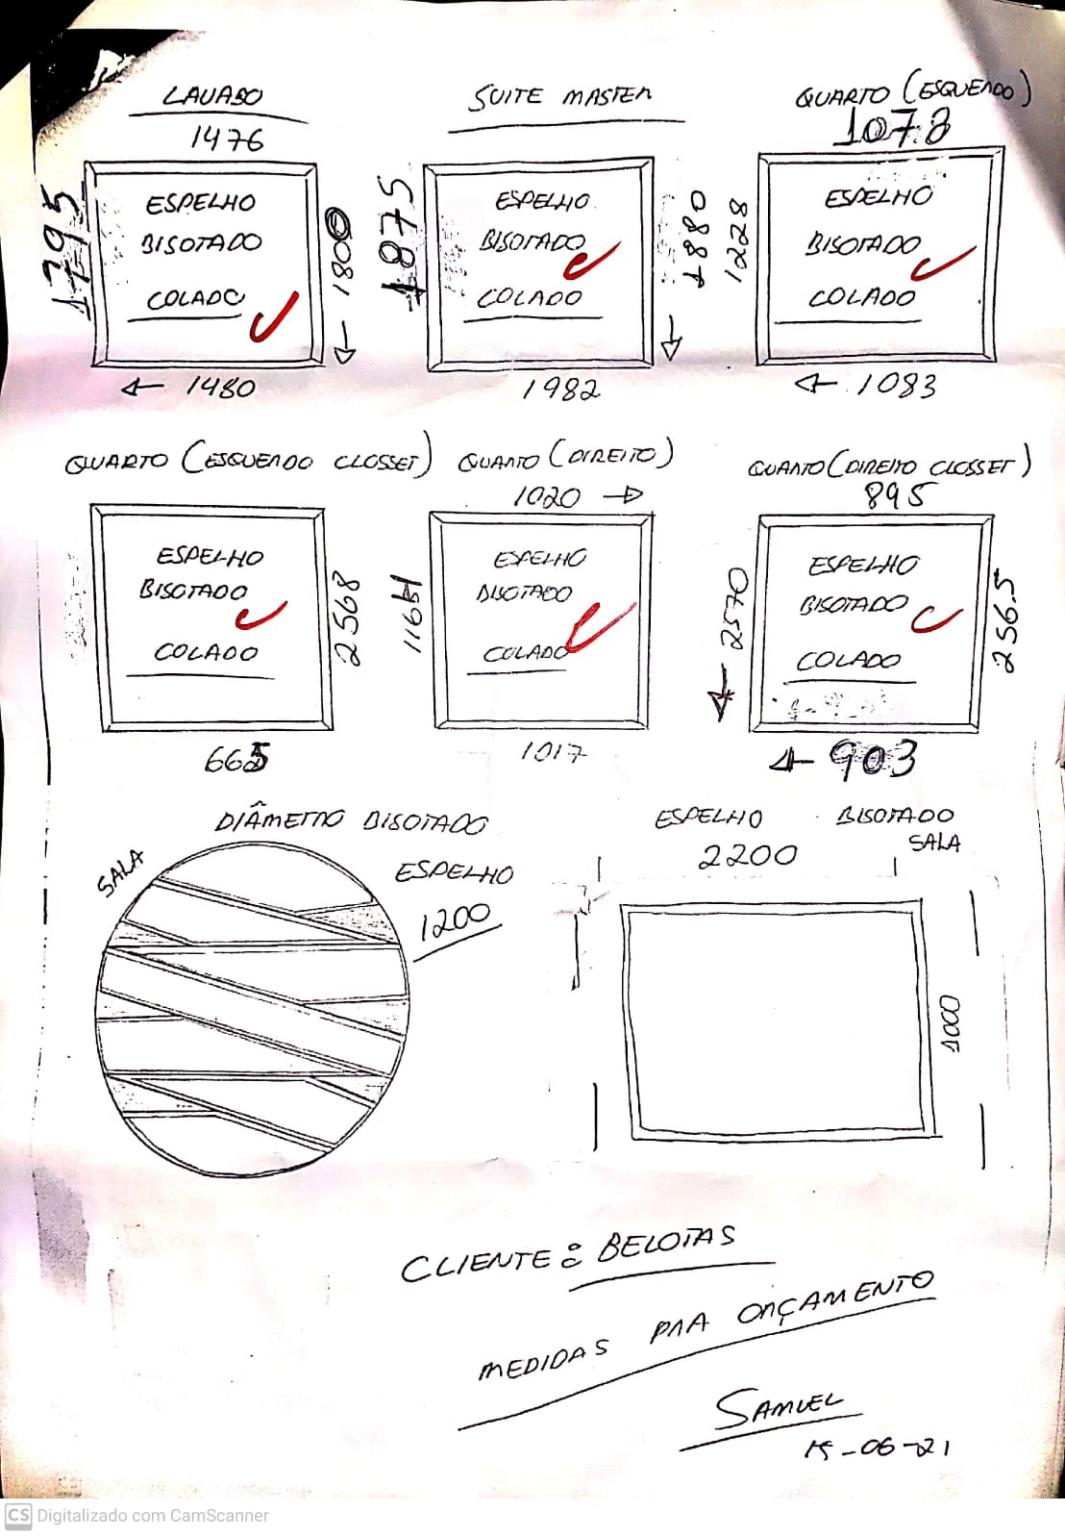 LAVABO
1476
1795
ESPELHO
BISOTADO
COLADO
1800
1480
SUITE MASTER
1875
ESPELHO
BISOTADO
COLADO
1880
1982
QUARTO (ESQUERDO)
1073
1228
ESPELHO
BISOTADO
COLADO
1083
QUARTO (ESQUERDO CLOSSET)
ESPELHO
BISOTADO
COLADO
2568
665
QUARTO (DIREITO)
1020
1164
ESPELHO
BISOTADO
COLADO
1017
QUARTO (DIREITO CLOSSET)
895
2570
ESPELHO
BISOTADO
COLADO
2565
903
DIÂMETRO BISOTADO
SALA
ESPELHO
1200
ESPELHO BISOTADO
SALA
2200
1000
CLIENTE: BELOTAS
MEDIDAS PRA ORÇAMENTO
SAMUEL
15-06-21
CS Digitalizado com CamScanner